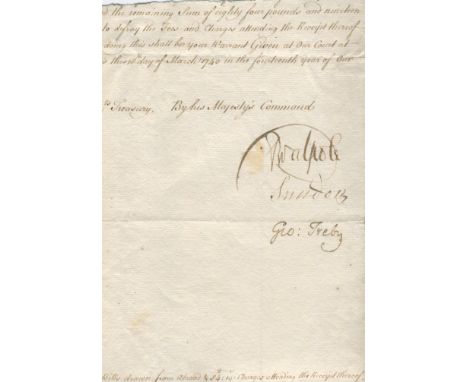 the remaining Sum of eighty four pounds and nineteen
to defray the Fees and Charges attending the Receipt thereof
doing this shall be your Warrant Given at Our Court at
day of March 1740 in the fourteenth year of Our
Treasury. By his Majesty's Command
RWalpole
Sundon
Geo: Treby
Bills drawn from abroad & 84:19: Charges attending the Receipt thereof